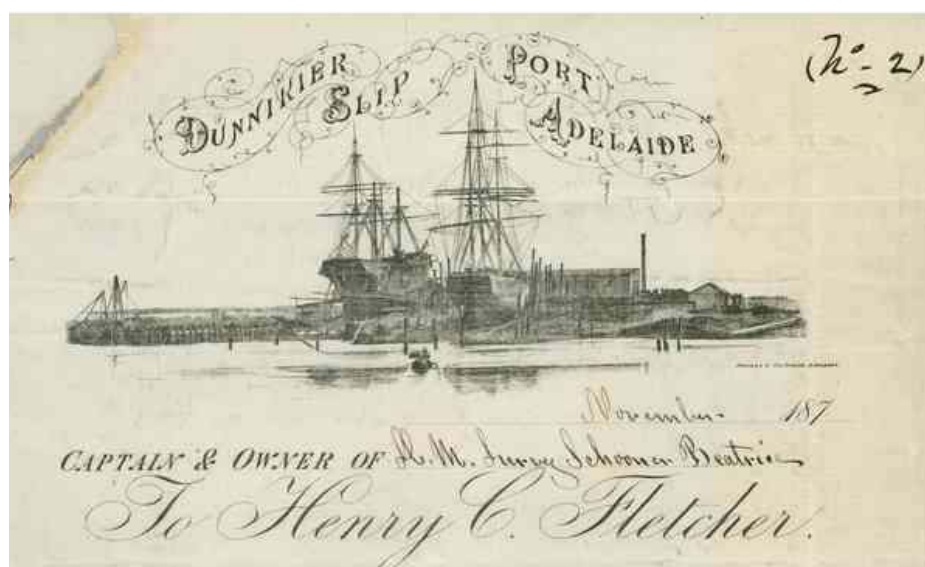 DUNNIKIER SLIP PORT ADELAIDE
(No- 2)
November 187
CAPTAIN & OWNER OF H. M. Survey Schooner Beatrice
To Henry C. Fletcher.